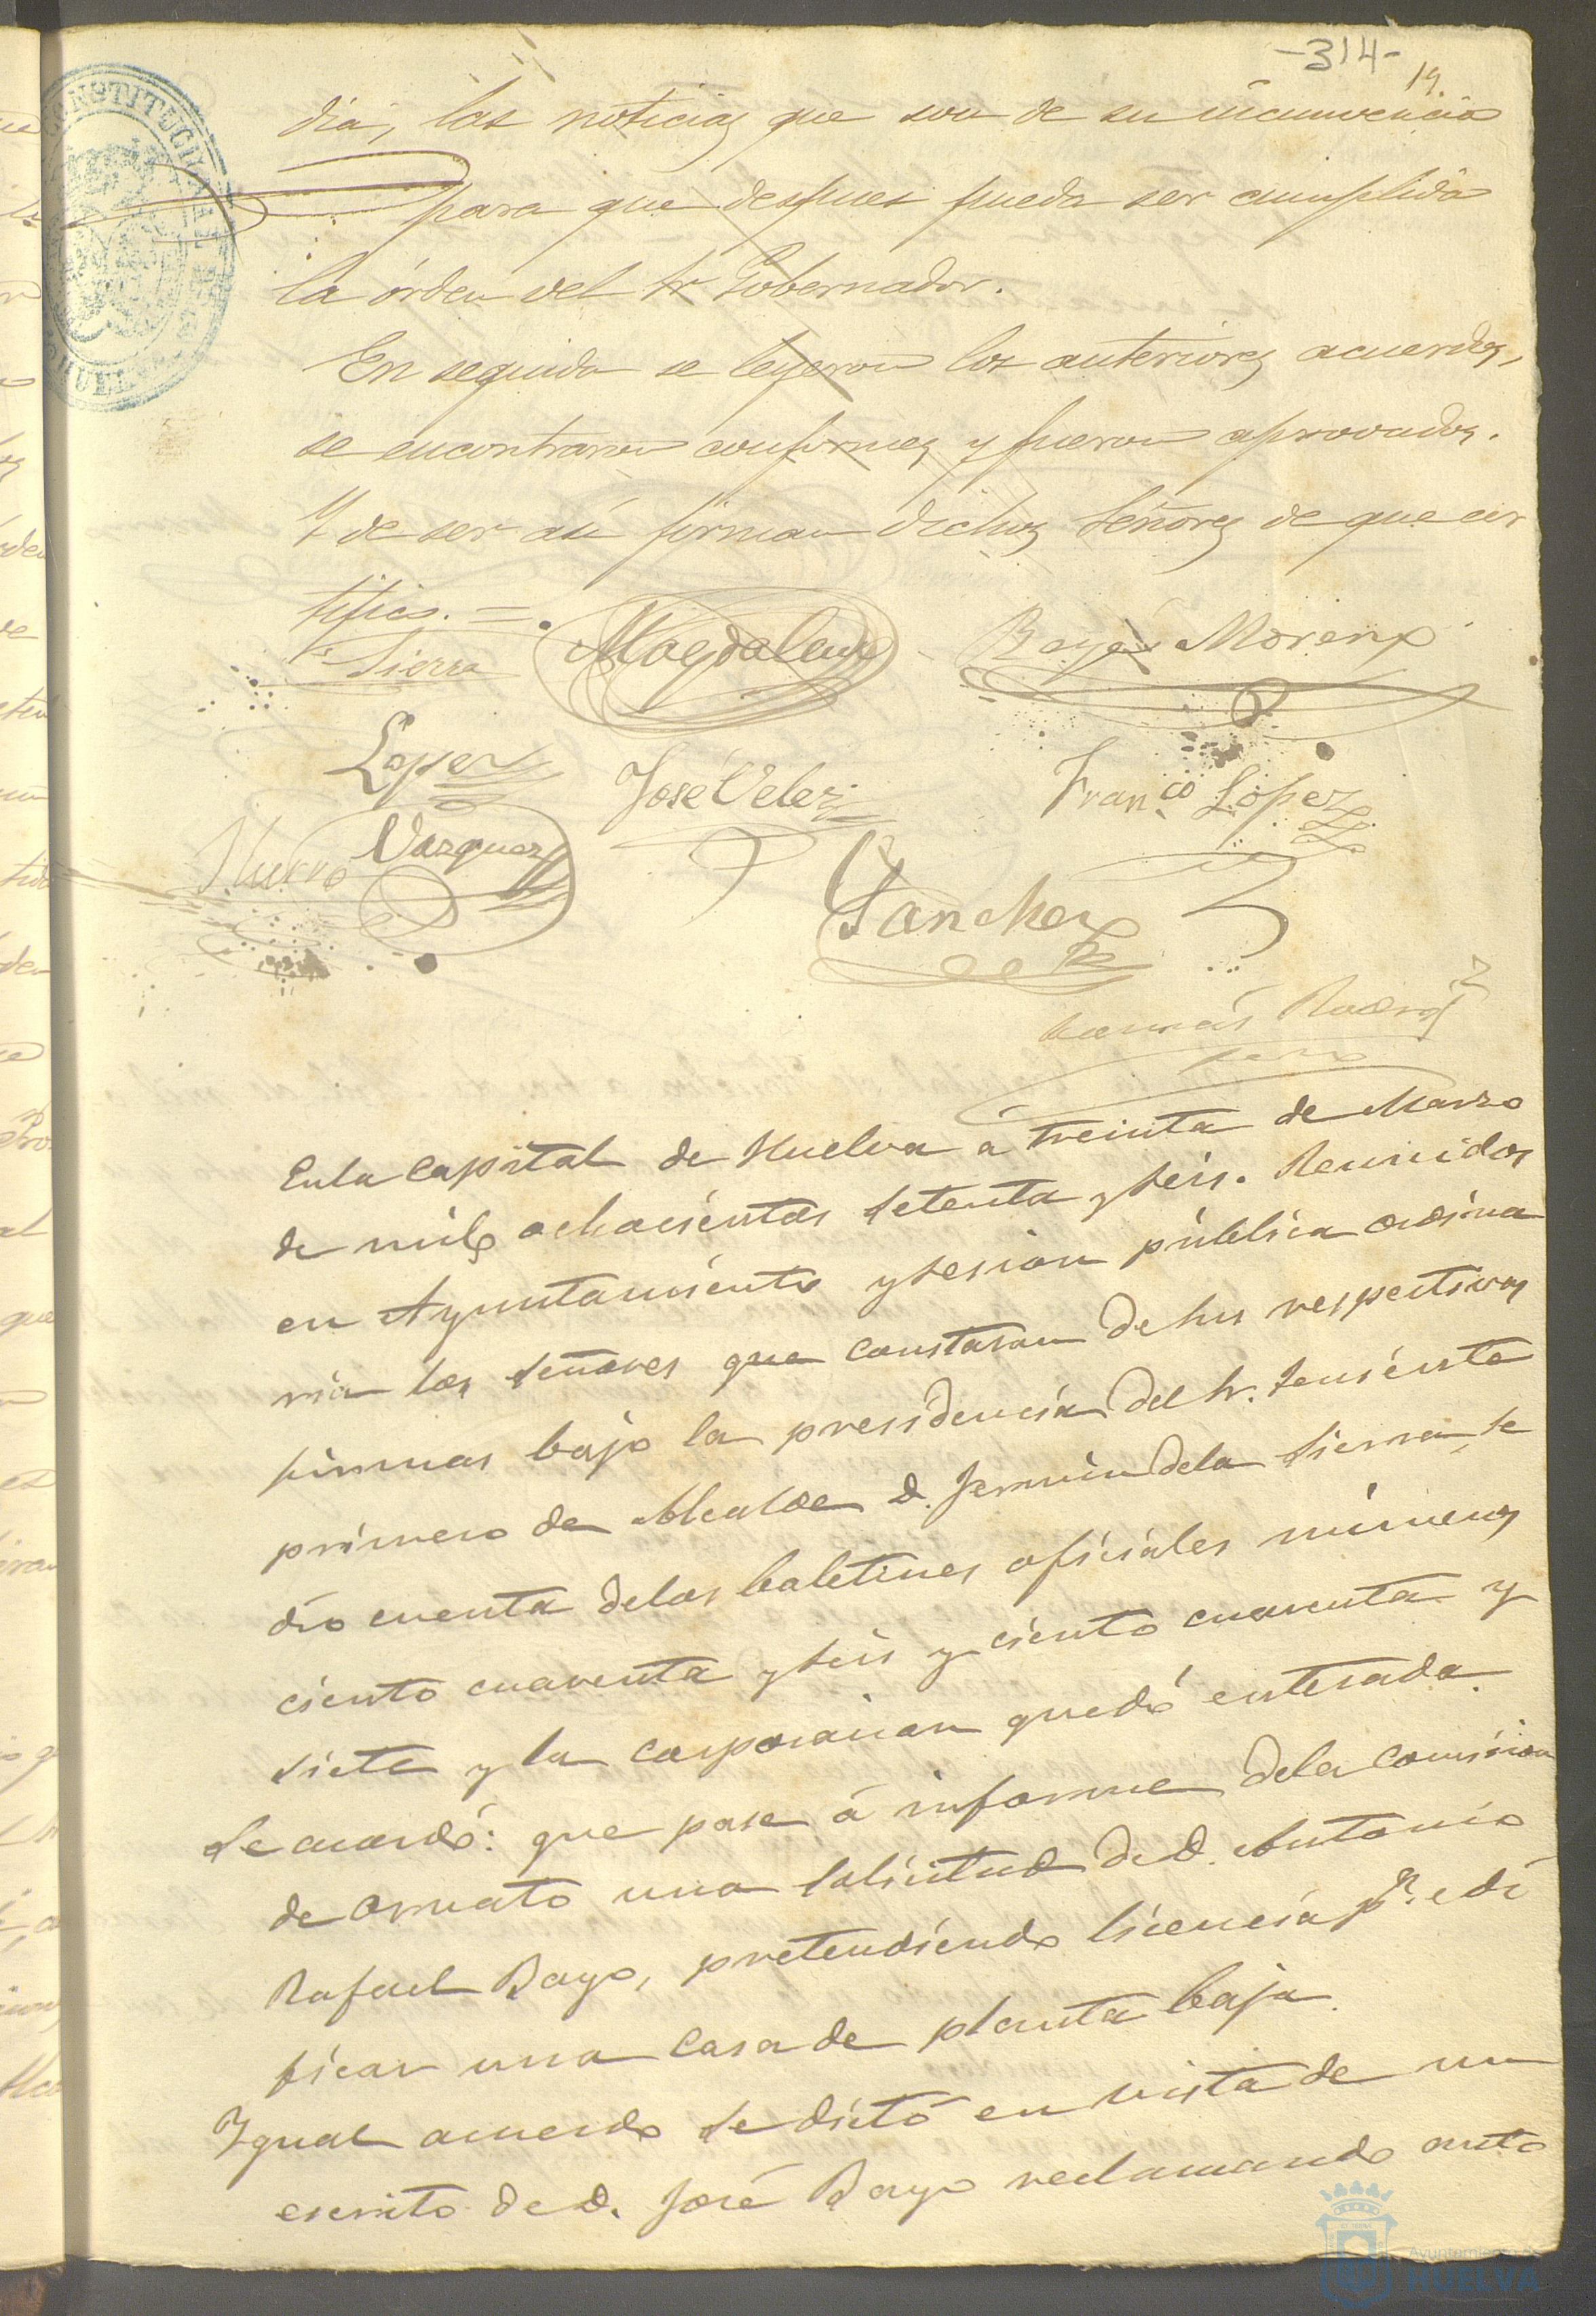 -314-
19.
dia, las noticias que son de su incumvencia
para que despues pueda ser cumplida
la órden del Sr Gobernador.
En seguida se leyeron los anteriores acuerdos,
se encontraron conformes y fueron aprovados.
Y de ser asi firman dichos Señores de que cer
tifico. =
Sierra Magdalena Moreno
Lopez José Velez Franco Lopez
Vazquez
Sanchez
En la Capital de Huelva á treinta de Marzo
de mil ochocientos setenta y seis. Reunidos
en Ayuntamiento y sesion pública ordina
ria los señores que constaran de sus respectivas
firmas bajo la presidencia del Sr. Teniente
primero de Alcalde D. Fermin dela Sierra se
dio cuenta delos boletines oficiales números
ciento cuarenta y seis y ciento cuarenta y
siete y la corporacion quedó enterada.
Se acordó: que pase á informe dela Comision
de Ornato una solicitud de D. Antonio
Rafael Bayo, pretendiendo licencia pa. edi
ficar una casa de planta baja.
Igual acuerdo se dictó en vista de un
escrito de D. José Bayo reclamando ante
CONSTITUCIONAL DE
HUELVA
Ayuntamiento de
HUELVA